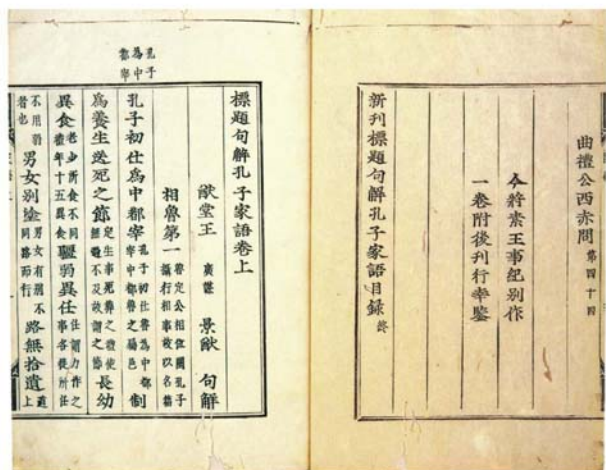 曲禮公西赤問 第四十四
今將素王事紀別作
一卷附後刊行幸鑒
新刊標題句解孔子家語目錄 終
孔子
為中
都宰
標題句解孔子家語卷上
猷堂王 廣謀 景猷 句解
相魯第一 魯定公相位闕孔子
攝行相事故以名篇
孔子初仕爲中都宰 孔子初仕魯為中都
宰中都魯之邑 制
爲養生送死之節 定生事死葬之禮使
無過不及故謂之節 長幼
異食 老少所食不同
禮年十五異食 強弱異任 任謂力作之
事各從所任
不用弱
者也 男女別塗 男女有別不
同路而行 路無拾遺 道
上